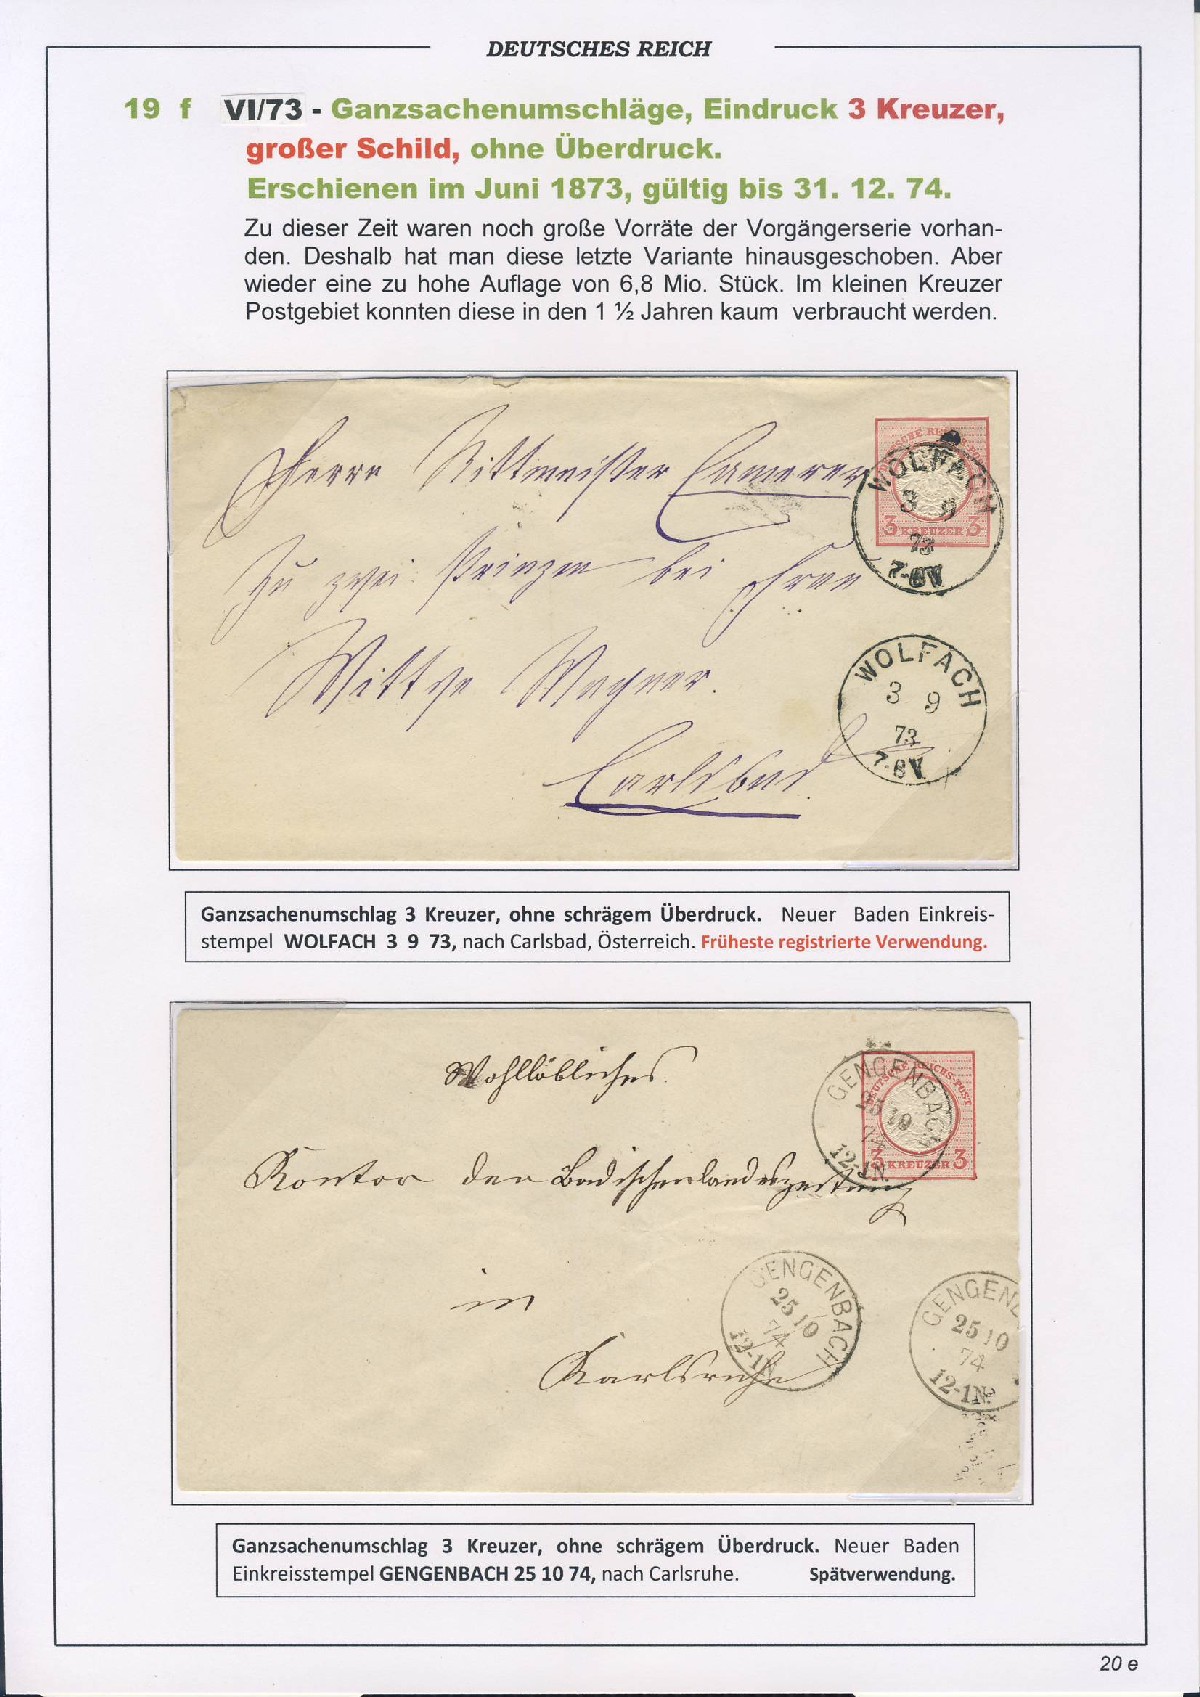 DEUTSCHES REICH
19 f VI/73 - Ganzsachenumschläge, Eindruck 3 Kreuzer,
großer Schild, ohne Überdruck.
Erschienen im Juni 1873, gültig bis 31. 12. 74.
Zu dieser Zeit waren noch große Vorräte der Vorgängerserie vorhan-
den. Deshalb hat man diese letzte Variante hinausgeschoben. Aber
wieder eine zu hohe Auflage von 6,8 Mio. Stück. Im kleinen Kreuzer
Postgebiet konnten diese in den 1 ½ Jahren kaum verbraucht werden.
Herrn Rittmeister Camerer
zu zwei Prinzen bei Frau
Wittwe Wagner.
Carlsbad
3 KREUZER 3
WOLFACH
3 9
73
WOLFACH
3 9
73
Ganzsachenumschlag 3 Kreuzer, ohne schrägem Überdruck. Neuer Baden Einkreis-
stempel WOLFACH 3 9 73, nach Carlsbad, Österreich. Früheste registrierte Verwendung.
Wohllöbliches
Kontor der Badischenlandeszeitung
in
Karlsruhe
DEUTSCHE REICHS-POST
3 KREUZER 3
GENGENBACH
25 10
74
12-1N.
GENGENBACH
25 10
74
12-1N
GENGENB
25 10
74
12-1N.
Ganzsachenumschlag 3 Kreuzer, ohne schrägem Überdruck. Neuer Baden
Einkreisstempel GENGENBACH 25 10 74, nach Carlsruhe. Spätverwendung.
20 e